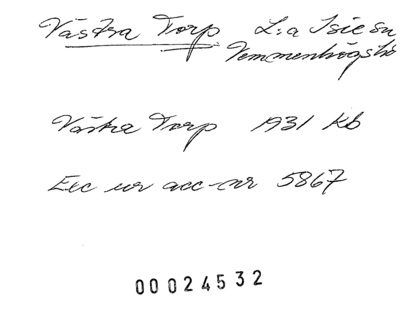 Västra Torp L:a Isie sn
Vemmenhögs hd
Västra Torp 1931 Kb
Exc ur acc-nr 5867
00024532